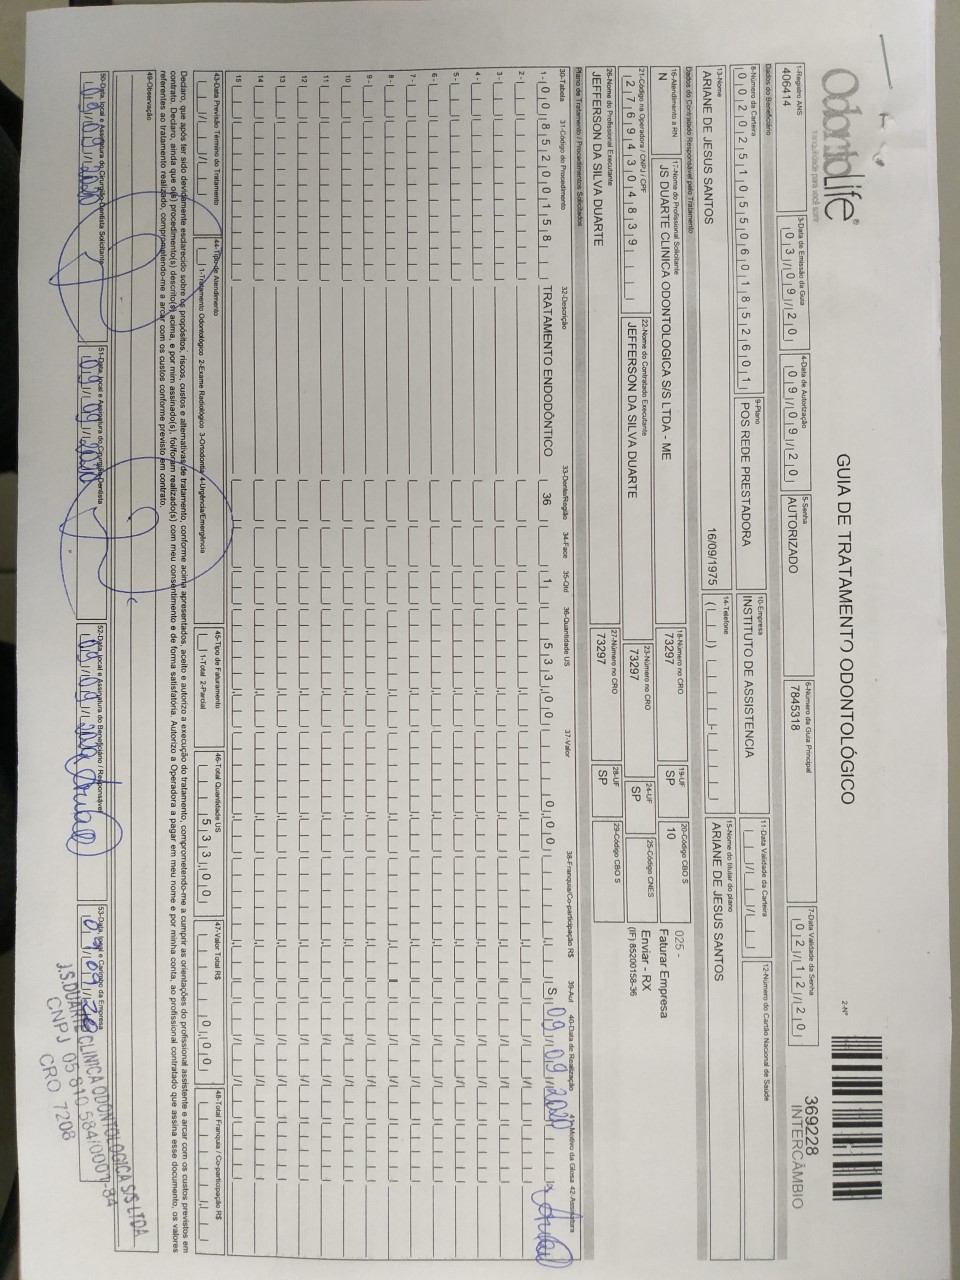 OdontoLife®
tranquilidade para você sorrir
GUIA DE TRATAMENTO ODONTOLÓGICO
2-Nº
369228
INTERCÂMBIO
1-Registro ANS
406414
3-Data de Emissão da Guia
03/09/20
4-Data de Autorização
09/09/20
5-Senha
AUTORIZADO
6-Número da Guia Principal
7845318
7-Data Validade da Senha
02/12/20
Dados do Beneficiário
8-Número da Carteira
00202510550601852601
9-Plano
POS REDE PRESTADORA
10-Empresa
INSTITUTO DE ASSISTENCIA
11-Data Validade da Carteira
12-Número do Cartão Nacional de Saúde
13-Nome
ARIANE DE JESUS SANTOS
16/09/1975
14-Telefone
15-Nome do titular do plano
ARIANE DE JESUS SANTOS
Dados do Contratado Responsável pelo Tratamento
16-Atendimento a RN
N
17-Nome do Profissional Solicitante
JS DUARTE CLINICA ODONTOLOGICA S/S LTDA - ME
18-Número no CRO
73297
19-UF
SP
20-Código CBO S
10
025 -
Faturar Empresa
21-Código na Operadora / CNPJ / CPF
27694304839
22-Nome do Contratado Executante
JEFFERSON DA SILVA DUARTE
23-Número no CRO
73297
24-UF
SP
25-Código CNES
Enviar - RX
(IF) 85200158-36
26-Nome do Profissional Executante
JEFFERSON DA SILVA DUARTE
27-Número no CRO
73297
28-UF
SP
29-Código CBO S
Plano de Tratamento / Procedimentos Solicitados
30-Tabela 31-Código do Procedimento 32-Descrição 33-Dente/Região 34-Face 35-Qtd 36-Quantidade US 37-Valor 38-Franquia/Co-participação R$ 39-Aut 40-Data de Realização 41-Motivo da Glosa 42-Assinatura
1- 00 85200158 TRATAMENTO ENDODÔNTICO 36 1 533,00 0,00 S 09/09/2020
2-
3-
4-
5-
6-
7-
8-
9-
10
11
12
13
14
15
43-Data Previsão Término do Tratamento
44-Tipo de Atendimento
1-Tratamento Odontológico 2-Exame Radiológico 3-Ortodontia 4-Urgência/Emergência
45-Tipo de Faturamento
1-Total 2-Parcial
46-Total Quantidade US
533,00
47-Valor Total R$
0,00
48-Total Franquia / Co-participação R$
Declaro, que após ter sido devidamente esclarecido sobre os propósitos, riscos, custos e alternativas de tratamento, conforme acima apresentados, aceito e autorizo a execução do tratamento, comprometendo-me a cumprir as orientações do profissional assistente e arcar com os custos previstos em
contrato. Declaro, ainda que o(s) procedimento(s) descrito(s) acima, e por mim assinado(s), foi/foram realizado(s) com meu consentimento e de forma satisfatória. Autorizo a Operadora a pagar em meu nome e por minha conta, ao profissional contratado que assina esse documento, os valores
referentes ao tratamento realizado, comprometendo-me a arcar com os custos conforme previsto em contrato.
49-Observação
50-Data, local e Assinatura do Cirurgião-Dentista Solicitante
09/09/2020
51-Data, local e Assinatura do Cirurgião-Dentista
09/09/2020
52-Data, local e Assinatura do Beneficiário / Responsável
09/09/2020
53-Data, local e Carimbo da Empresa
09/09/20
J.S.DUARTE CLINICA ODONTOLOGICA S/S LTDA
CNPJ 05 810 584/0001-84
CRO 7208